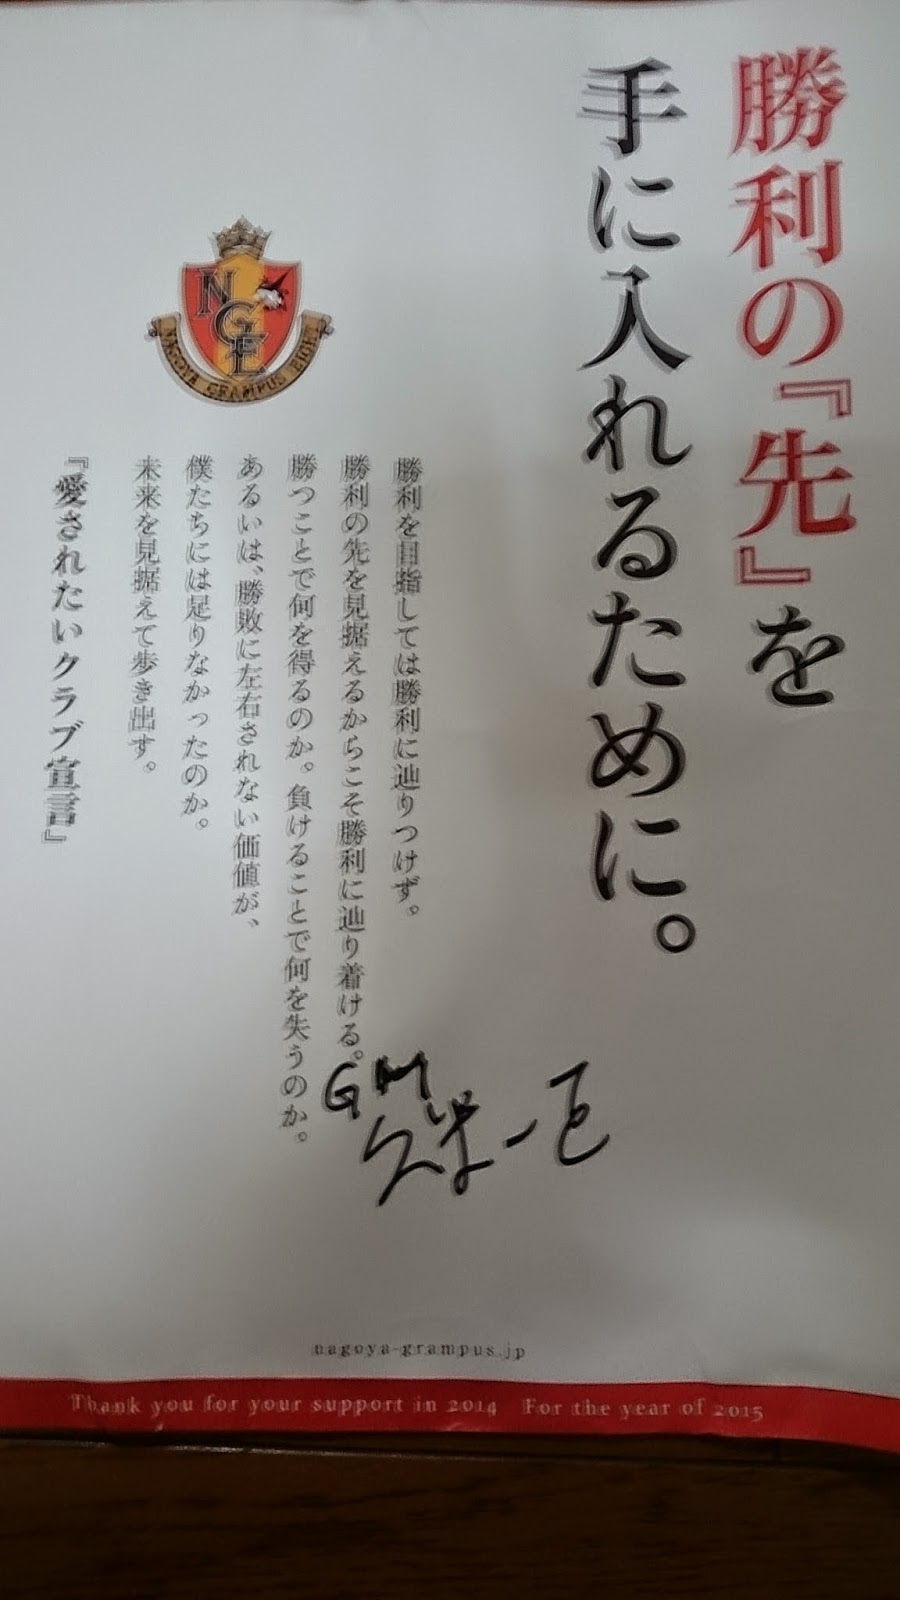 勝利の『先』を
手に入れるために。
勝利を目指しては勝利に辿りつけず。
勝利の先を見据えるからこそ勝利に辿り着ける。
勝つことで何を得るのか。負けることで何を失うのか。
あるいは、勝敗に左右されない価値が、
僕たちには足りなかったのか。
未来を見据えて歩き出す。
『愛されたいクラブ宣言』
NGE
NAGOYA GRAMPUS EIGHT
GM
久米一正
nagoya-grampus.jp
Thank you for your support in 2014 For the year of 2015